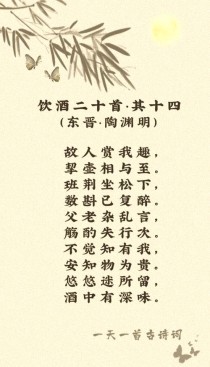 饮酒二十首·其十四
(东晋·陶渊明)
故人赏我趣，
挈壶相与至。
班荆坐松下，
数斟已复醉。
父老杂乱言，
觞酌失行次。
不觉知有我，
安知物为贵。
悠悠迷所留，
酒中有深味。
一天一首古诗词